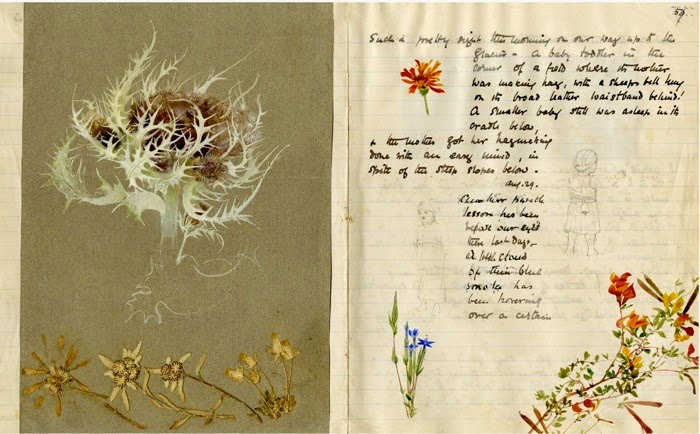 59
Such a pretty sight this morning on our way up to the
Glacier – A baby toddler in the
corner of a field where its mother
was making hay, with a sheeps bell hung
on its broad leather waistband behind!
A smaller baby still was asleep in its
cradle below,
& the mother got her haymaking
done with an easy mind, in
spite of the steep slopes below –
Aug. 29.
Another Swiss
lesson has been
before our eyes
these last days,
a little cloud
of thin blue
smoke has
been hovering
over a certain